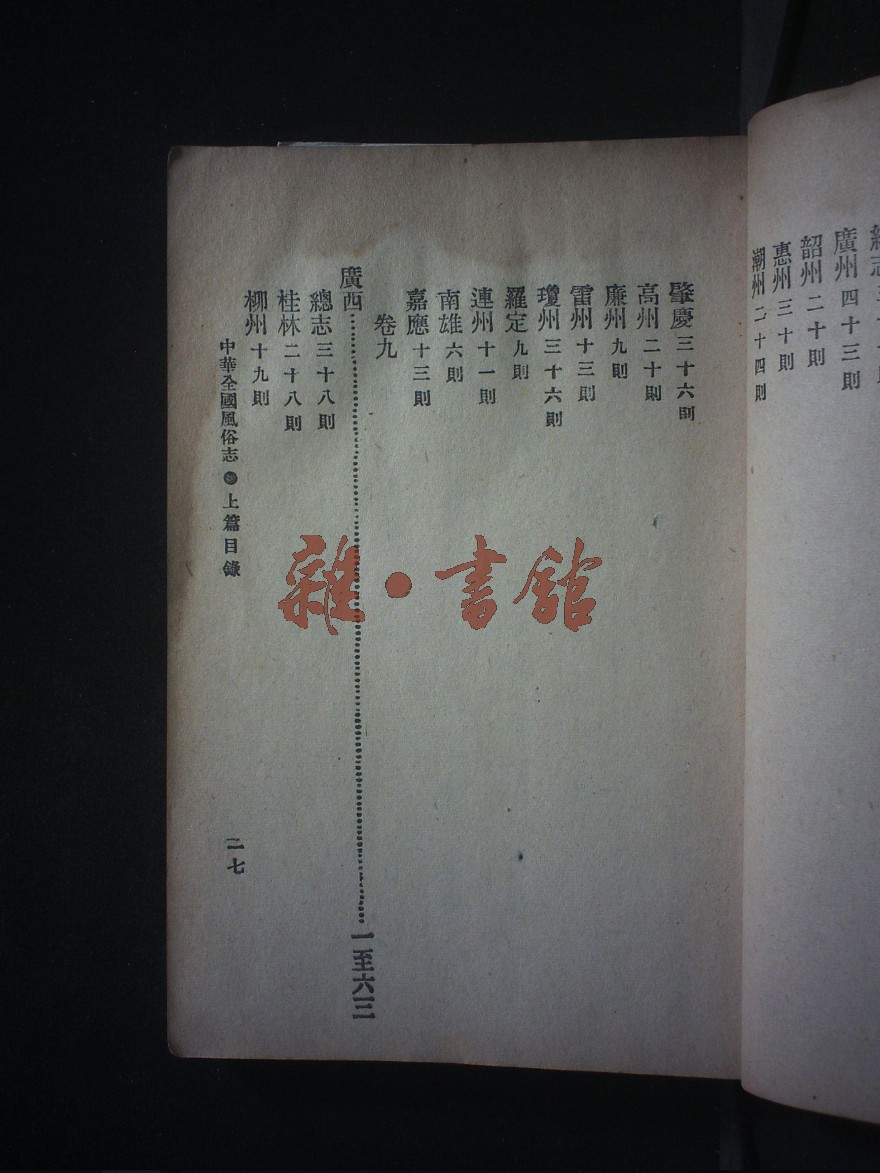 廣州 四十三則
韶州 二十則
惠州 三十則
潮州 二十四則
肇慶 三十六則
高州 二十則
廉州 九則
雷州 十三則
瓊州 三十六則
羅定 九則
連州 十一則
南雄 六則
嘉應 十三則
卷九
廣西……一至六三
總志 三十八則
桂林 二十八則
柳州 十九則
中華全國風俗志 上篇目錄
二七
雜・書館